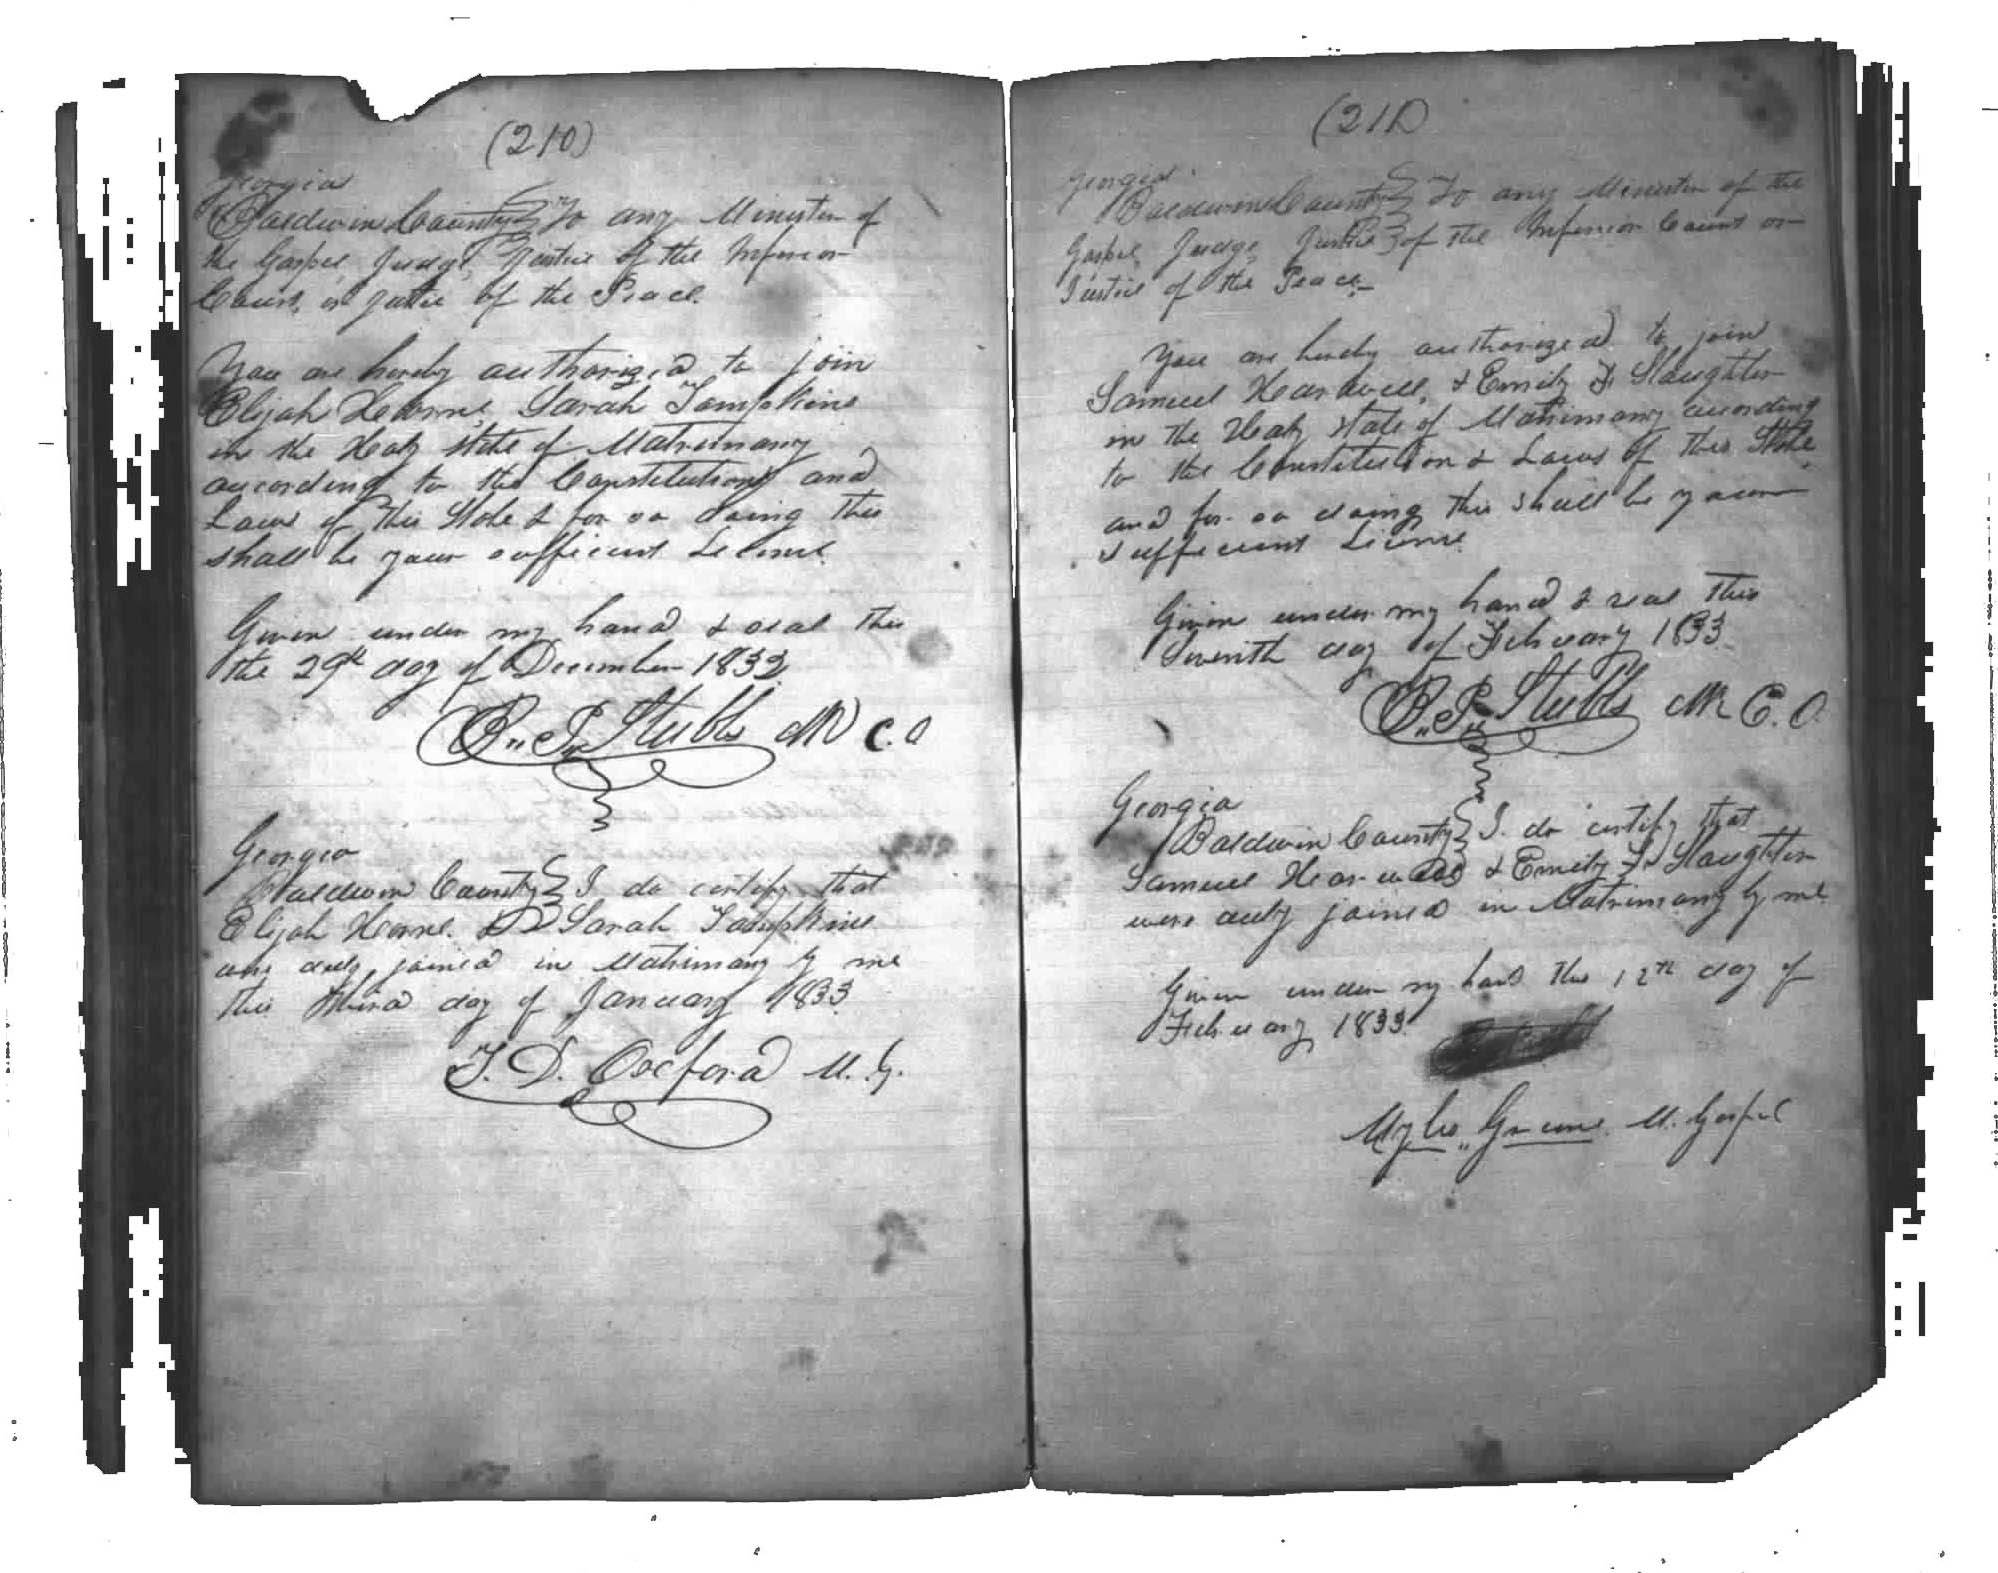 (210)
Georgia
Baldwin County } To any Minister of
the Gospel, Judge, Justice of the Inferior
Court, or Justice of the Peace.
You are hereby authorized to join
Elijah Horne, Sarah Tompkins
in the Holy state of Matrimony
according to the Constitution and
Laws of this State & for so doing this
shall be your sufficient License.
Given under my hand & seal this
the 29th day of December 1832
B. P. Stubbs C. O
Georgia
Baldwin County } I do certify that
Elijah Horne. Sarah Tompkins
was duly joined in Matrimony by me
this third day of January 1833
T. D. Oxford M. G.
(211)
Georgia
Baldwin County } To any Minister of the
Gospel, Judge, Justice of the Inferior Court or
Justice of the Peace.
You are hereby authorized to join
Samuel Hardwell, & Emily F. Slaughter
in the Holy state of Matrimony according
to the Constitution & Laws of this State,
and for so doing this shall be your
sufficient License
Given under my hand & seal this
Seventh day of February 1833
B. P. Stubbs C. O.
Georgia
Baldwin County } I. do certify that
Samuel & Emily F. Slaughter
were duly joined in Matrimony by me
Given under my hand this 12th day of
February 1833.
Myles Greene. M. Gospel